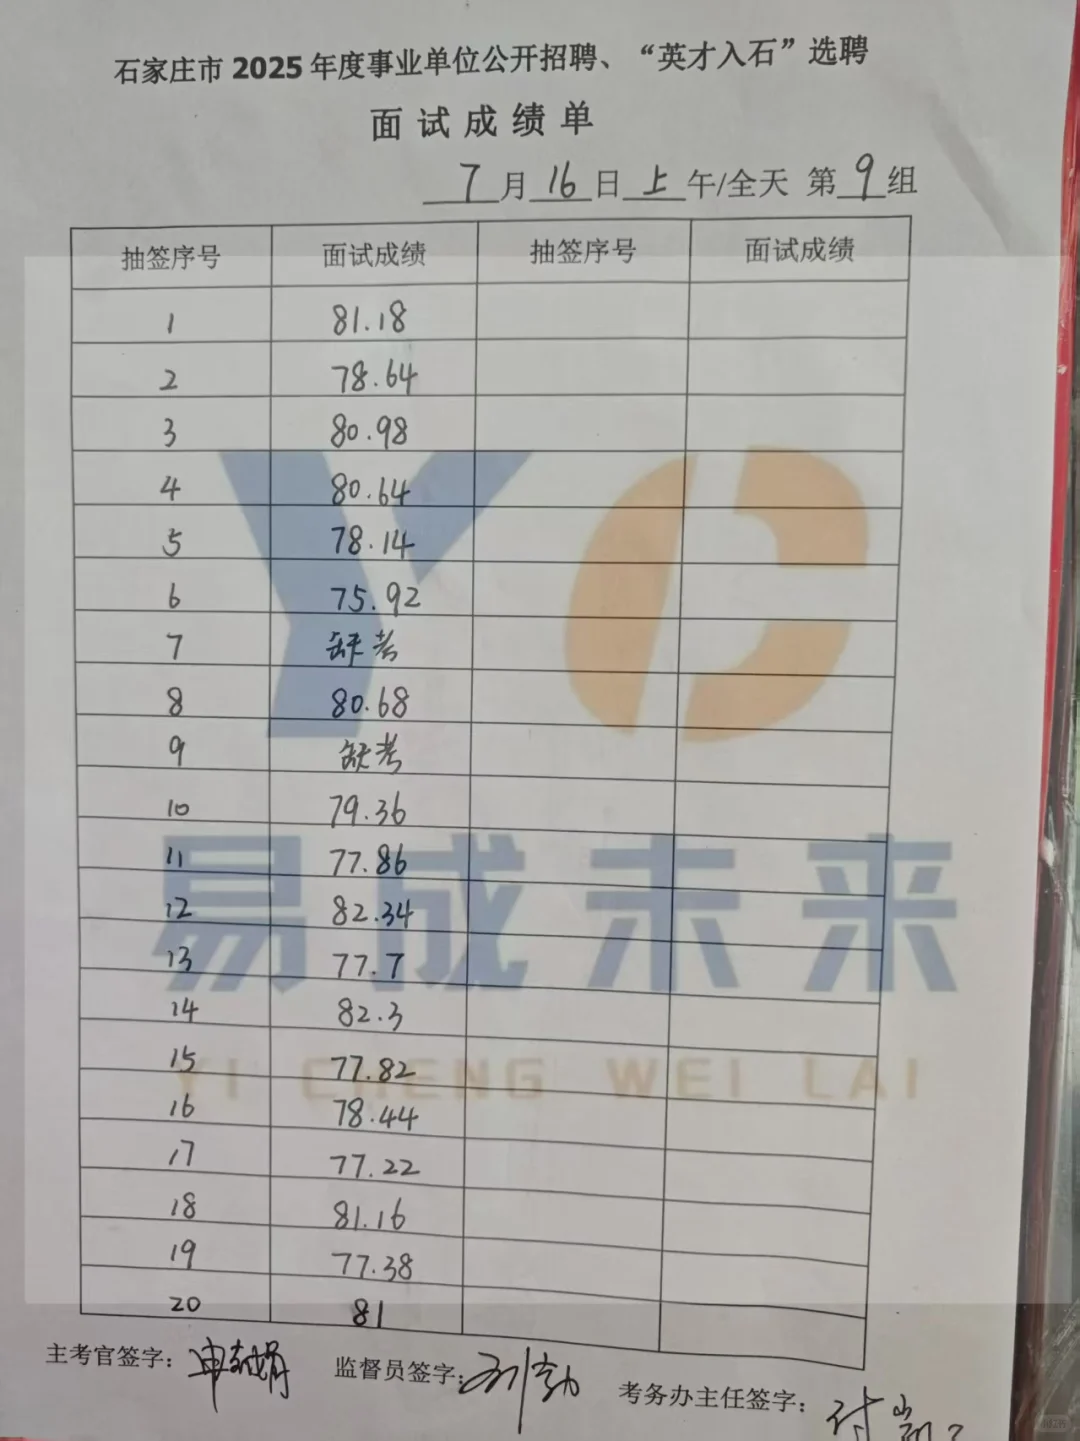 石家庄市 2025 年度事业单位公开招聘、“英才入石”选聘
面试成绩单
7月16日上午/全天 第9组
抽签序号 面试成绩 抽签序号 面试成绩
1 81.18
2 78.64
3 80.98
4 80.64
5 78.14
6 75.92
7 缺考
8 80.68
9 缺考
10 79.36
11 77.86
12 82.34
13 77.7
14 82.3
15 77.82
16 78.44
17 77.22
18 81.16
19 77.38
20 81
主考官签字： 监督员签字： 考务办主任签字：
YC
易成未来
YI CHENG WEI LAI